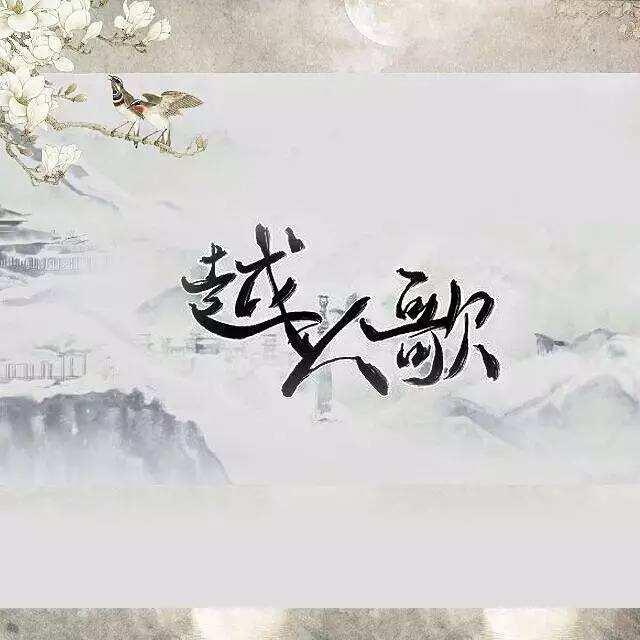 越人歌